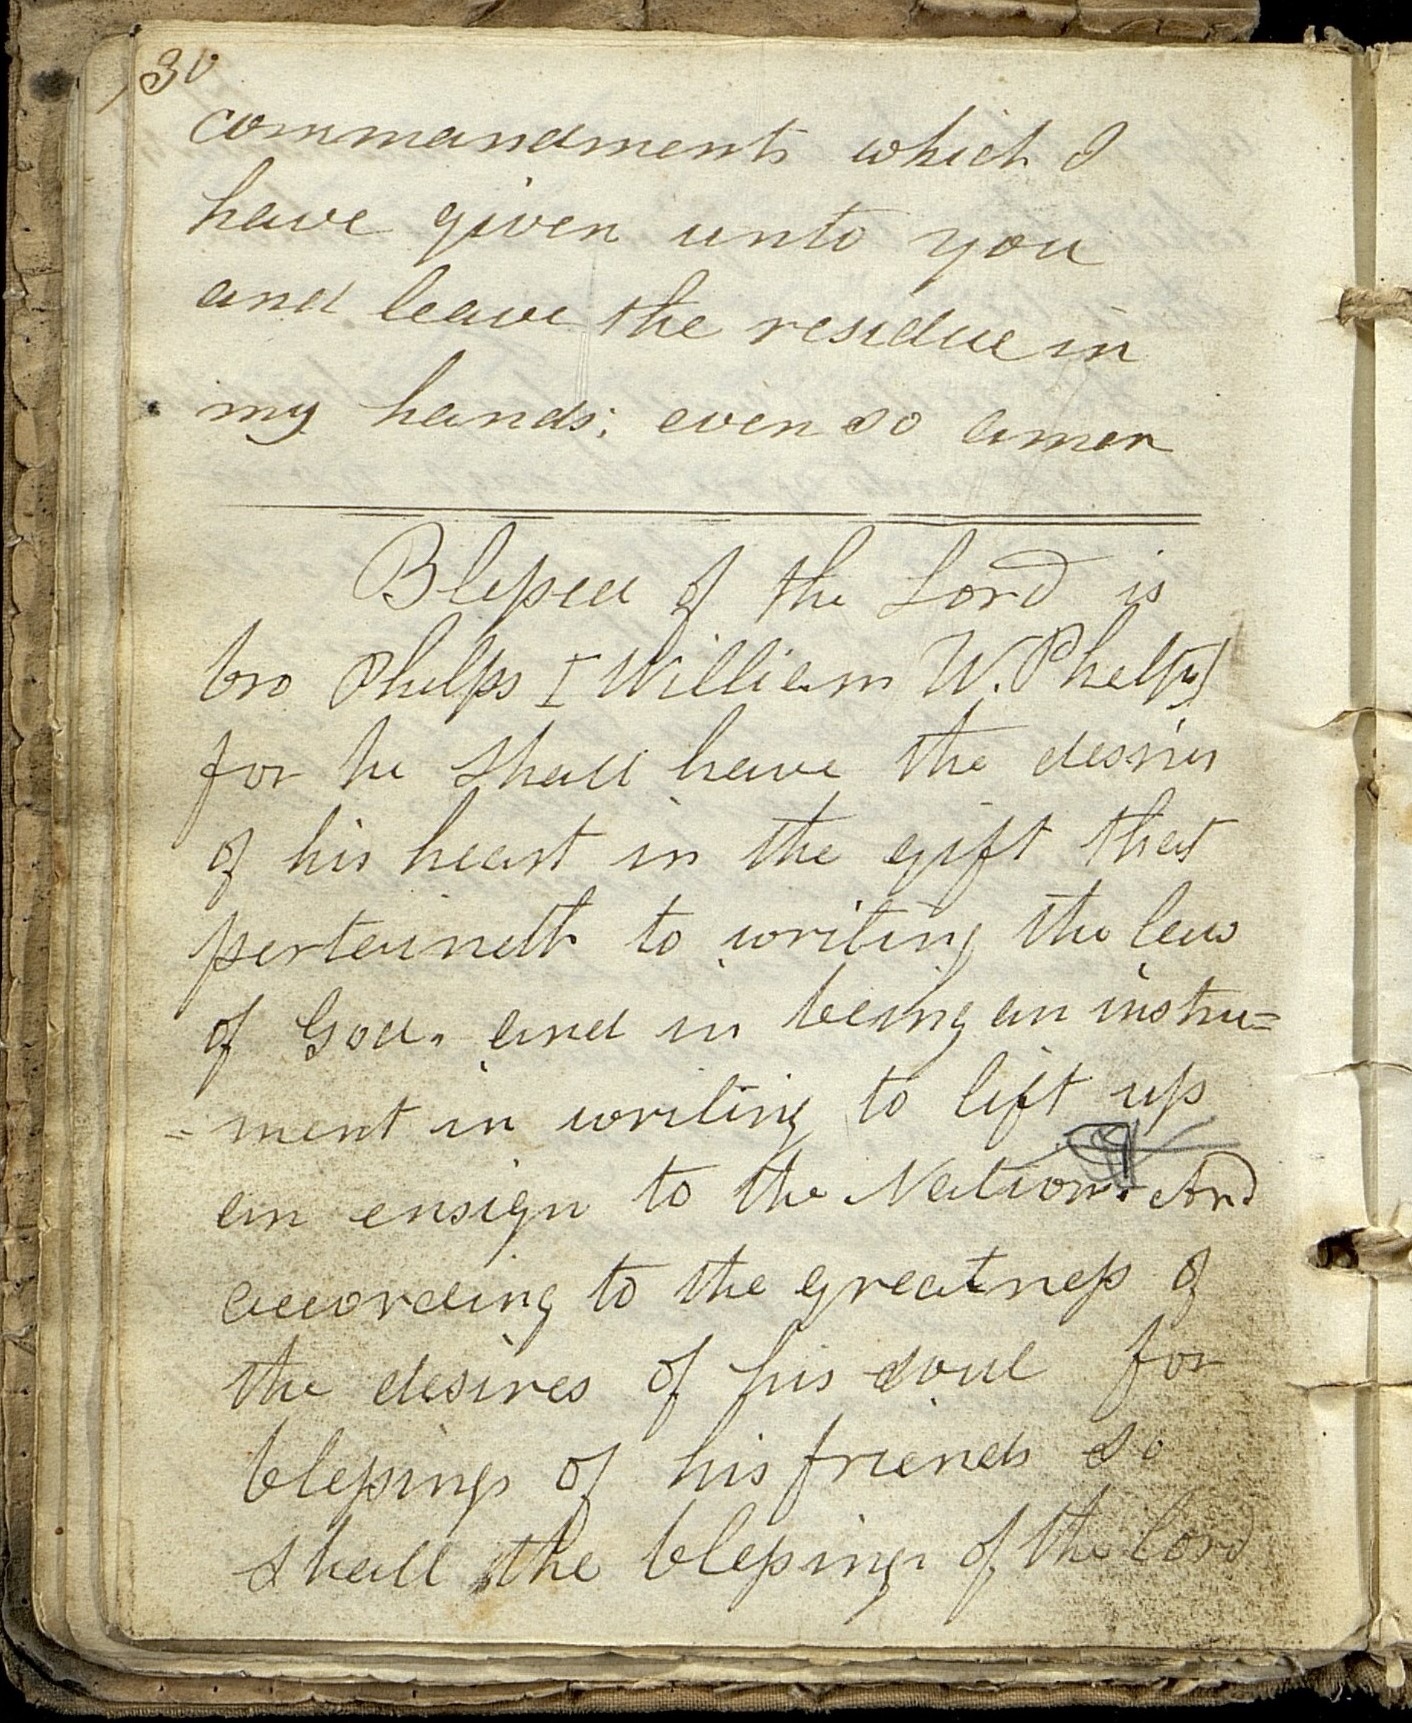 30
commandments which I
have given unto you
and leave the residue in
my hands; even so amen
Blessed of the Lord is
bro Phelps [William W. Phelps]
for he shall have the desires
of his heart in the gift that
pertaineth to writing the law
of God. and in being an instru=
=ment in writing to lift up
an ensign to the Nations. And
according to the greatness of
the desires of his soul for
blessings of his friends so
shall the blessings of the Lord